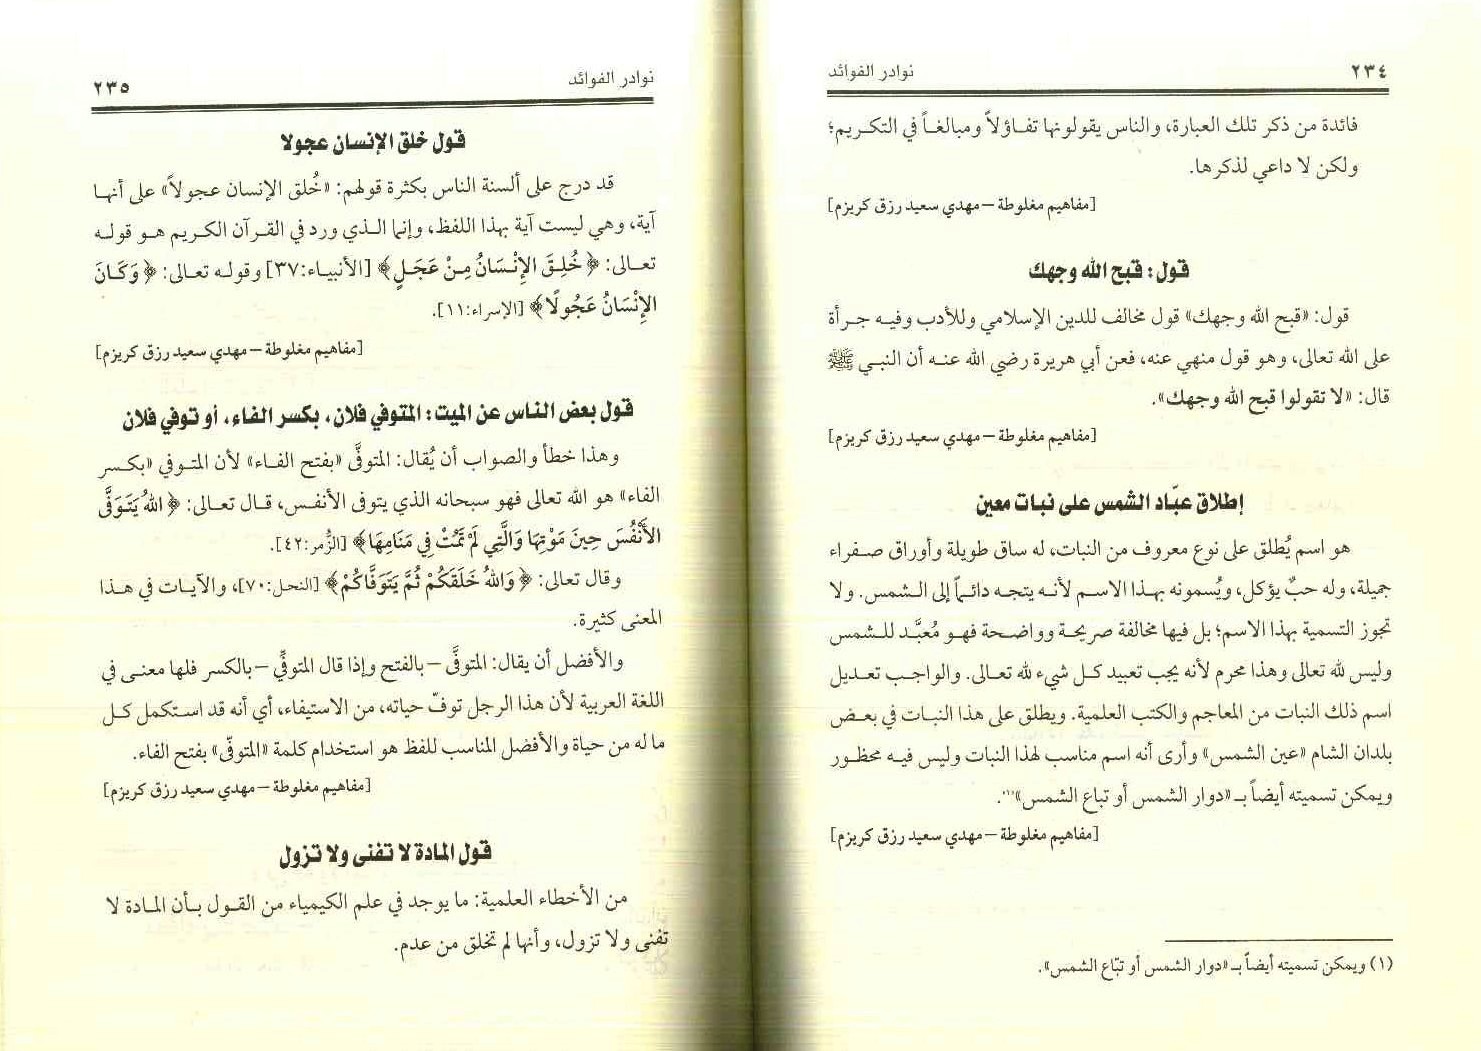 ٢٣٤
نوادر الفوائد
فائدة من ذكر تلك العبارة، والناس يقولونها تفاؤلاً ومبالغاً في التكريم؛
ولكن لا داعي لذكرها.
[مفاهيم مغلوطة – مهدي سعيد رزق كريزم]
قول: قبح الله وجهك
قول: «قبح الله وجهك» قول مخالف للدين الإسلامي وللأدب وفيه جرأة
على الله تعالى، وهو قول منهي عنه، فعن أبي هريرة رضي الله عنه أن النبي ﷺ
قال: «لا تقولوا قبح الله وجهك».
[مفاهيم مغلوطة – مهدي سعيد رزق كريزم]
إطلاق عبّاد الشمس على نبات معين
هو اسم يُطلق على نوع معروف من النبات، له ساق طويلة وأوراق صفراء
جميلة، وله حبٌ يؤكل، ويُسمونه بهذا الاسم لأنه يتجه دائماً إلى الشمس. ولا
تجوز التسمية بهذا الاسم؛ بل فيها مخالفة صريحة وواضحة فهو مُعبَّد للشمس
وليس لله تعالى وهذا محرم لأنه يجب تعبيد كل شيء لله تعالى. والواجب تعديل
اسم ذلك النبات من المعاجم والكتب العلمية. ويطلق على هذا النبات في بعض
بلدان الشام «عين الشمس» وأرى أنه اسم مناسب لهذا النبات وليس فيه محظور
ويمكن تسميته أيضاً بـ «دوار الشمس أو تباع الشمس»(١).
[مفاهيم مغلوطة – مهدي سعيد رزق كريزم]
(١) ويمكن تسميته أيضاً بـ «دوار الشمس أو تبّاع الشمس».
نوادر الفوائد
٢٣٥
قول خلق الإنسان عجولا
قد درج على ألسنة الناس بكثرة قولهم: «خُلق الإنسان عجولاً» على أنها
آية، وهي ليست آية بهذا اللفظ، وإنما الذي ورد في القرآن الكريم هو قوله
تعالى: ﴿خُلِقَ الإِنْسَانُ مِنْ عَجَلٍ﴾ [الأنبياء:٣٧] وقوله تعالى: ﴿وَكَانَ
الإِنْسَانُ عَجُولًا﴾ [الإسراء:١١].
[مفاهيم مغلوطة – مهدي سعيد رزق كريزم]
قول بعض الناس عن الميت: المتوفي فلان، بكسر الفاء، أو توفي فلان
وهذا خطأ والصواب أن يُقال: المتوفَّى «بفتح الفاء» لأن المتوفي «بكسر
الفاء» هو الله تعالى فهو سبحانه الذي يتوفى الأنفس، قال تعالى: ﴿اللهُ يَتَوَفَّى
الأَنْفُسَ حِينَ مَوْتِهَا وَالَّتِي لَمْ تَمُتْ فِي مَنَامِهَا﴾ [الزُّمر:٤٢].
وقال تعالى: ﴿وَاللهُ خَلَقَكُمْ ثُمَّ يَتَوَفَّاكُمْ﴾ [النحل:٧٠]، والآيات في هذا
المعنى كثيرة.
والأفضل أن يقال: المتوفَّى –بالفتح وإذا قال المتوفِّي –بالكسر فلها معنى في
اللغة العربية لأن هذا الرجل توفّ حياته، من الاستيفاء، أي أنه قد استكمل كل
ما له من حياة والأفضل المناسب للفظ هو استخدام كلمة «المتوفّى» بفتح الفاء.
[مفاهيم مغلوطة – مهدي سعيد رزق كريزم]
قول المادة لا تفنى ولا تزول
من الأخطاء العلمية: ما يوجد في علم الكيمياء من القول بأن المادة لا
تفنى ولا تزول، وأنها لم تخلق من عدم.